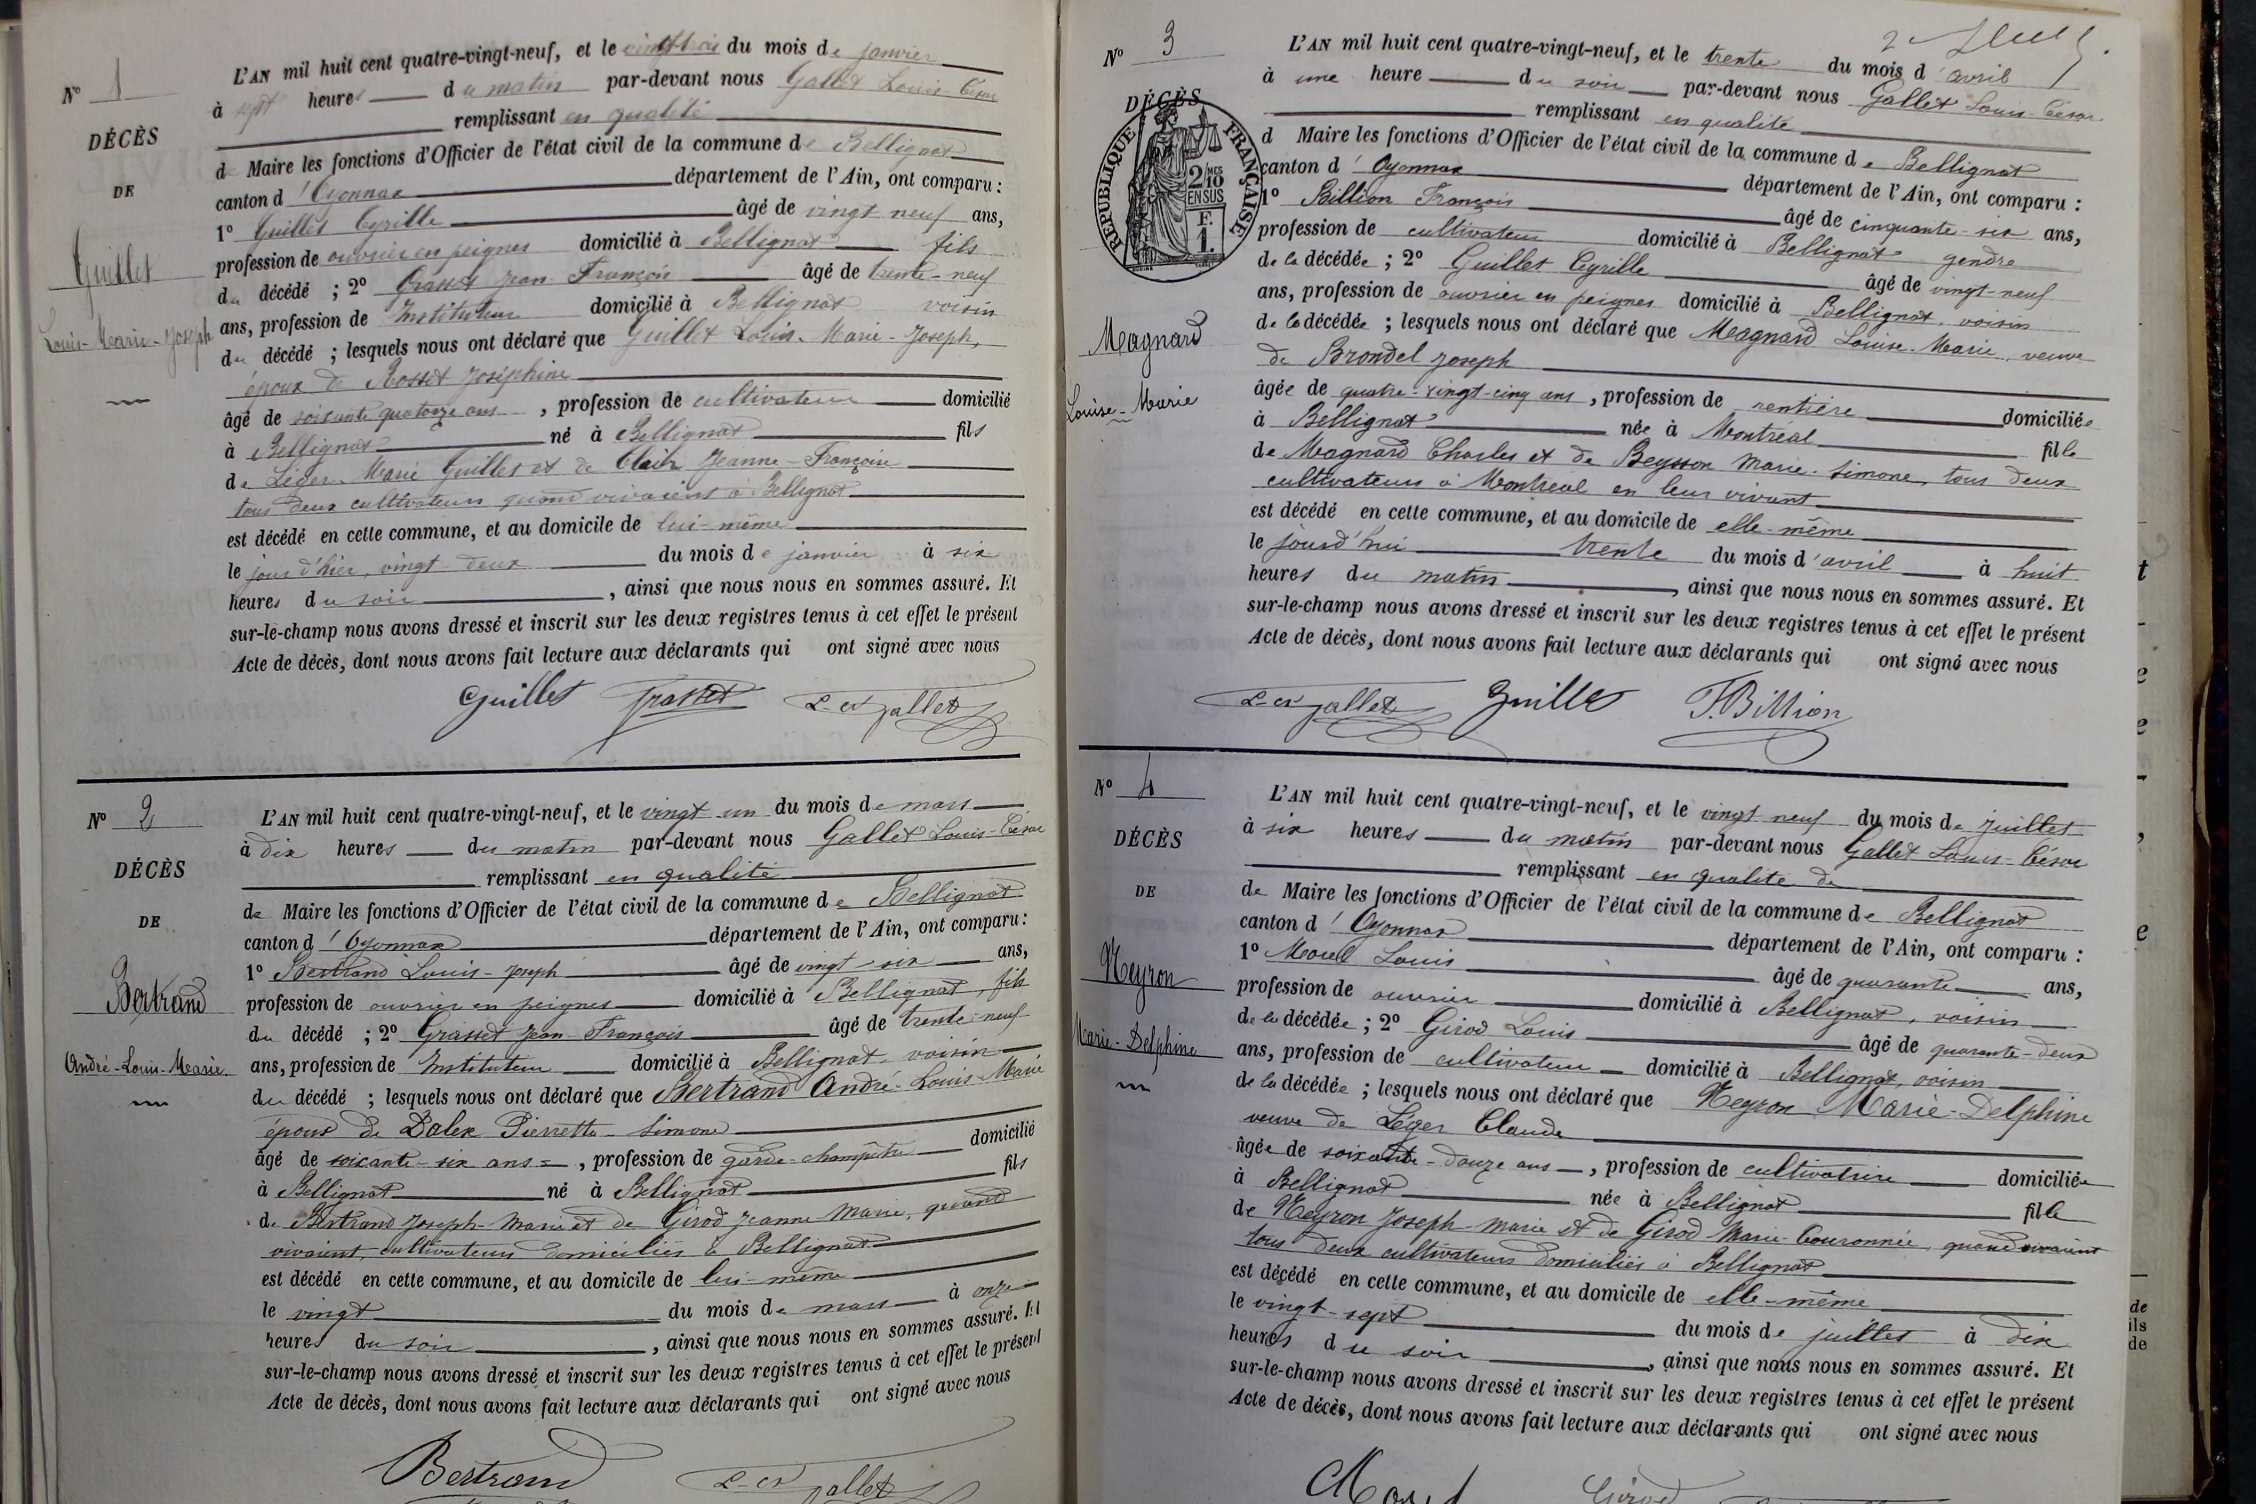 N° 1
DÉCÈS
DE
Guillet
Louis-Marie-Joseph
L'AN mil huit cent quatre-vingt-neuf, et le vingt trois du mois de janvier
à sept heures du matin par-devant nous Gallet Louis-César
remplissant en qualité
de Maire les fonctions d'Officier de l'état civil de la commune de Bellignat
canton d'Oyonnax département de l'Ain, ont comparu :
1° Guillet Cyrille âgé de vingt neuf ans,
profession de ouvrier en peignes domicilié à Bellignat fils
du décédé ; 2° Grasset Jean-François âgé de trente-neuf
ans, profession de Instituteur domicilié à Bellignat voisin
du décédé ; lesquels nous ont déclaré que Guillet Louis-Marie-Joseph,
époux de Rosset Joséphine
âgé de soixante quatorze ans, profession de cultivateur domicilié
à Bellignat né à Bellignat fils
de Léger-Marie Guillet et de Clair Jeanne-Françoise
tous deux cultivateurs quand vivaient à Bellignat
est décédé en cette commune, et au domicile de lui-même
le jour d'hier, vingt-deux du mois de janvier à six
heures du soir, ainsi que nous nous en sommes assuré. Et
sur-le-champ nous avons dressé et inscrit sur les deux registres tenus à cet effet le présent
Acte de décès, dont nous avons fait lecture aux déclarants qui ont signé avec nous
Guillet Grasset L-Cr Gallet
N° 2
DÉCÈS
DE
Bertrand
André-Louis-Marie
L'AN mil huit cent quatre-vingt-neuf, et le vingt un du mois de mars
à dix heures du matin par-devant nous Gallet Louis-César
remplissant en qualité
de Maire les fonctions d'Officier de l'état civil de la commune de Bellignat
canton d'Oyonnax département de l'Ain, ont comparu :
1° Bertrand Louis-Joseph âgé de vingt-six ans,
profession de ouvrier en peignes domicilié à Bellignat, fils
du décédé ; 2° Grasset Jean-François âgé de trente-neuf
ans, profession de Instituteur domicilié à Bellignat voisin
du décédé ; lesquels nous ont déclaré que Bertrand André-Louis-Marie
époux de Dalex Pierrette-Simone
âgé de soixante-six ans, profession de garde-champêtre domicilié
à Bellignat né à Bellignat fils
de Bertrand Joseph-Marie et de Girod Jeanne Marie, quand
vivaient, cultivateurs domiciliés à Bellignat
est décédé en cette commune, et au domicile de lui-même
le vingt du mois de mars à onze
heures du soir, ainsi que nous nous en sommes assuré. Et
sur-le-champ nous avons dressé et inscrit sur les deux registres tenus à cet effet le présent
Acte de décès, dont nous avons fait lecture aux déclarants qui ont signé avec nous
Bertrand L-Cr Gallet
N° 3
DÉCÈS
RÉPUBLIQUE FRANÇAISE
2 MES
10
EN SUS
F.
1.
Magnard
Louise-Marie
L'AN mil huit cent quatre-vingt-neuf, et le trente du mois d'avril
à une heure du soir par-devant nous Gallet Louis-César
remplissant en qualité
d Maire les fonctions d'Officier de l'état civil de la commune de Bellignat
canton d'Oyonnax département de l'Ain, ont comparu :
1° Billion François âgé de cinquante-six ans,
profession de cultivateur domicilié à Bellignat gendre
de la décédée ; 2° Guillet Cyrille âgé de vingt-neuf
ans, profession de ouvrier en peignes domicilié à Bellignat, voisin
de la décédée ; lesquels nous ont déclaré que Magnard Louise-Marie, veuve
de Brondel Joseph
âgée de quatre-vingt-cinq ans, profession de rentière domiciliée
à Bellignat née à Montréal fille
de Magnard Charles et de Beysson Marie-Simone, tous deux
cultivateurs à Montréal en leur vivant
est décédé en cette commune, et au domicile de elle-même
le jourd'hui trente du mois d'avril à huit
heures du matin, ainsi que nous nous en sommes assuré. Et
sur-le-champ nous avons dressé et inscrit sur les deux registres tenus à cet effet le présent
Acte de décès, dont nous avons fait lecture aux déclarants qui ont signé avec nous
L-Cr Gallet Guillet F. Billion
N° 4
DÉCÈS
DE
Neyron
Marie-Delphine
L'AN mil huit cent quatre-vingt-neuf, et le vingt neuf du mois de juillet
à six heures du matin par-devant nous Gallet Louis-César
remplissant en qualité de
de Maire les fonctions d'Officier de l'état civil de la commune de Bellignat
canton d'Oyonnax département de l'Ain, ont comparu :
1° Morel Louis âgé de quarante ans,
profession de ouvrier domicilié à Bellignat, voisin
de la décédée ; 2° Girod Louis âgé de quarante-deux
ans, profession de cultivateur domicilié à Bellignat, voisin
de la décédée ; lesquels nous ont déclaré que Neyron Marie-Delphine
veuve de Leger Claude
âgée de soixante-douze ans, profession de cultivatrice domiciliée
à Bellignat née à Bellignat fille
de Neyron Joseph-Marie et de Girod Marie-Couronnée, quand vivaient
tous deux cultivateurs domiciliés à Bellignat
est décédé en cette commune, et au domicile de elle-même
le vingt-sept du mois de juillet à dix
heures du soir, ainsi que nous nous en sommes assuré. Et
sur-le-champ nous avons dressé et inscrit sur les deux registres tenus à cet effet le présent
Acte de décès, dont nous avons fait lecture aux déclarants qui ont signé avec nous
Morel Girod